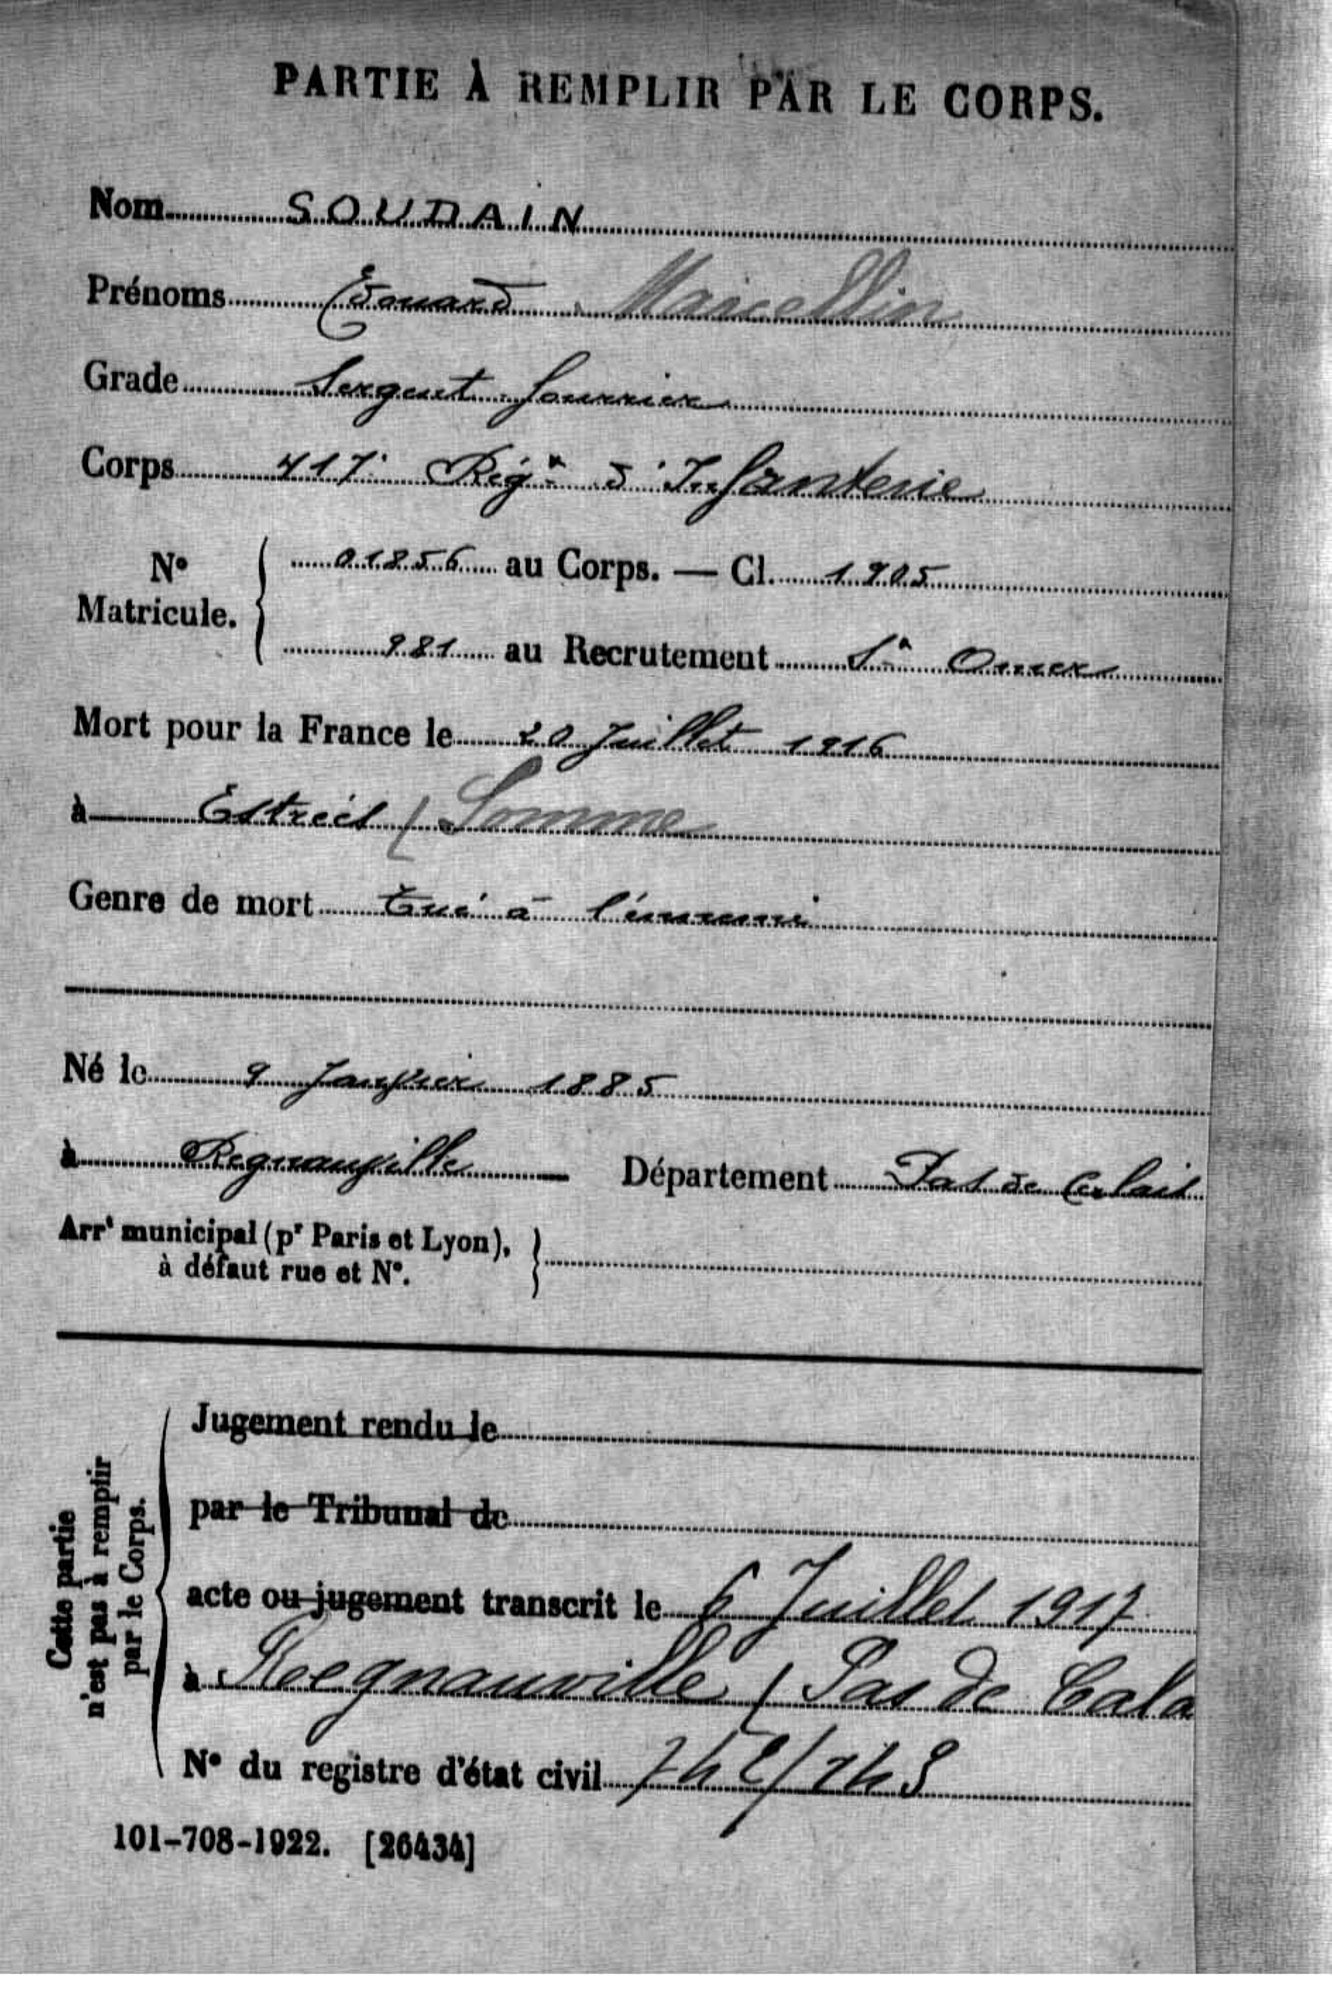 PARTIE À REMPLIR PAR LE CORPS.
Nom SOUDAIN
Prénoms Edouard Marcellin
Grade Sergent fourrier
Corps 417e Rég.t d'Infanterie
No Matricule. 01856 au Corps. — Cl. 1905
981 au Recrutement St Omer
Mort pour la France le 20 Juillet 1916
à Estrées (Somme
Genre de mort Tué à l'ennemi
Né le 9 Janvier 1885
à Regnauville — Département Pas de Calais
Arrt municipal (pr Paris et Lyon), à défaut rue et No.
Cette partie n'est pas à remplir par le Corps.
Jugement rendu le
par le Tribunal de
acte ou jugement transcrit le 6 Juillet 1917
à Regnauville (Pas de Cala
No du registre d'état civil
101-708-1922. [26434]